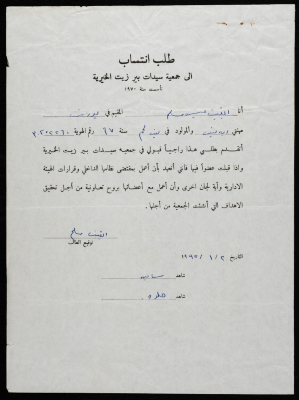 طلب انتساب
الى جمعية سيدات بير زيت الخيرية
تأسست سنة ١٩٧٠
أنا المقيم في
مهنتي والمولود في سنة ٦٧ رقم الهوية
أتقدم بطلبي هذا راجياً قبولي في جمعية سيدات بير زيت الخيرية
واذا قبلت عضواً فيها فأنني أتعهد بأن أعمل بمقتضى نظامها الداخلي وقرارات الهيئة
الادارية وأية لجان اخرى وأن أعمل مع أعضائها بروح تعاونية من أجل تحقيق
الاهداف التي أنشئت الجمعية من أجلها.
توقيع الطالب
التاريخ ٢ / ١ / ١٩٩٥
شاهد
شاهد